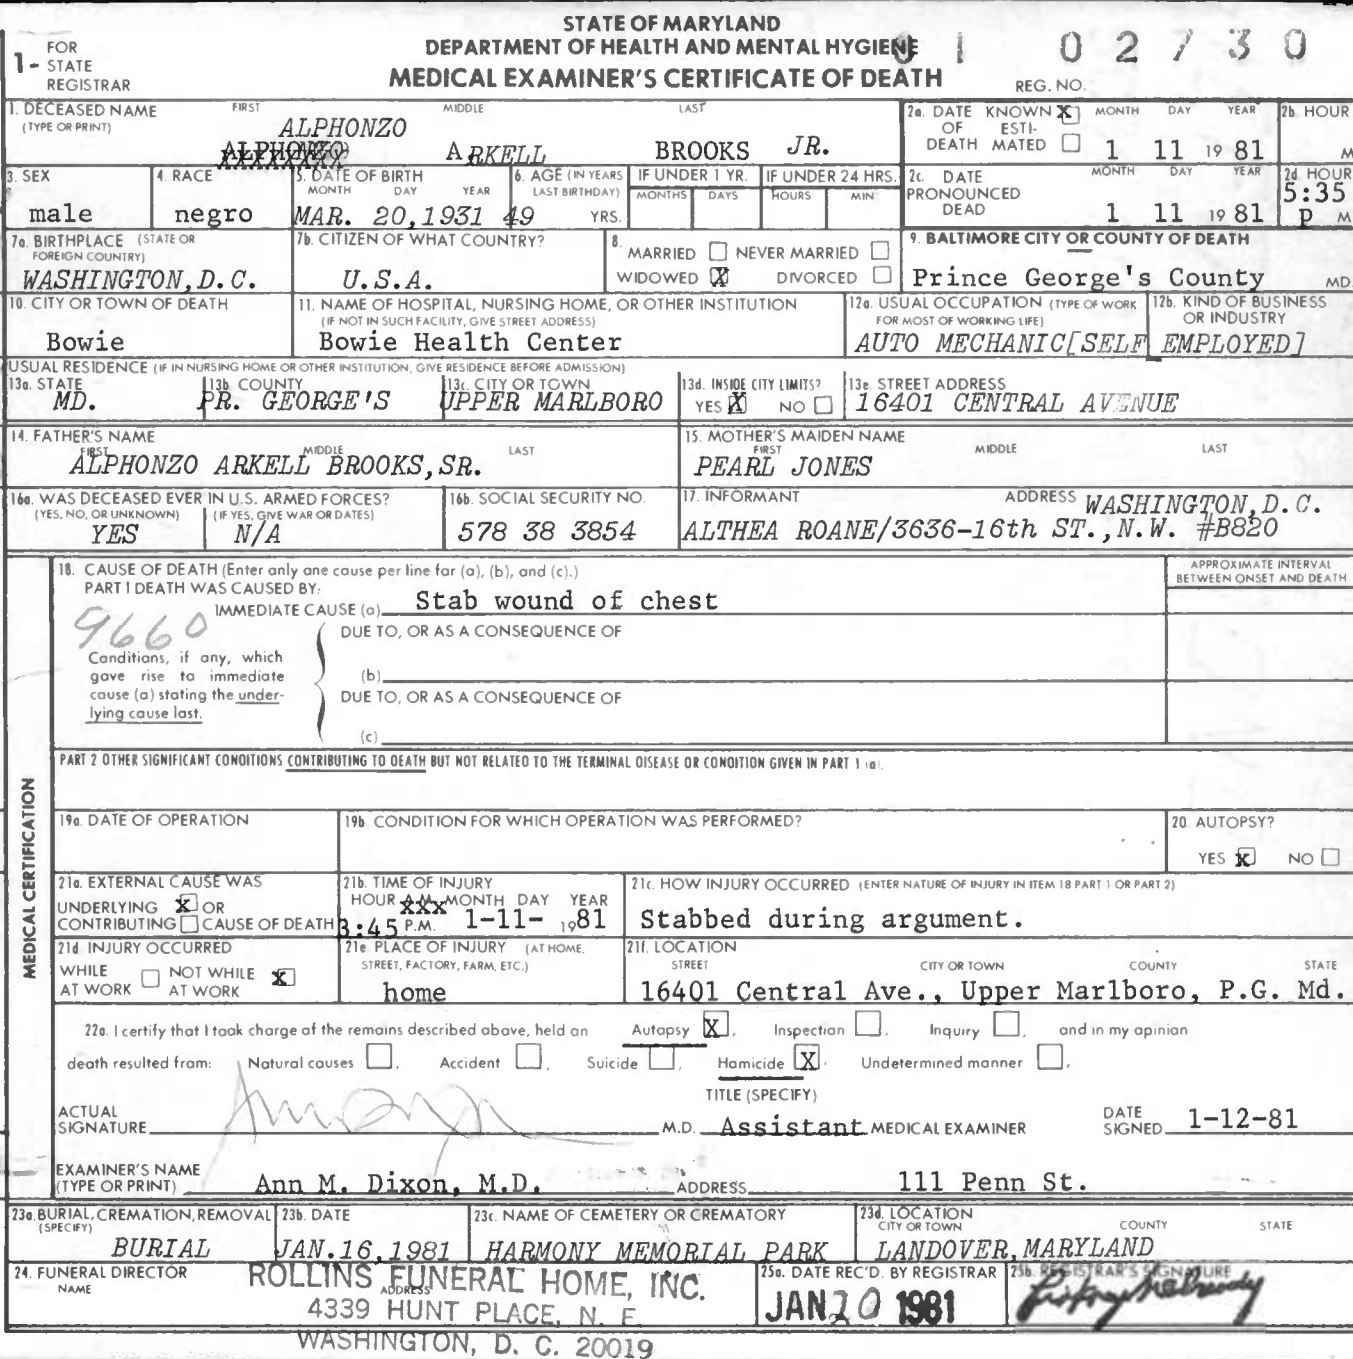 STATE OF MARYLAND
DEPARTMENT OF HEALTH AND MENTAL HYGIENE
MEDICAL EXAMINER'S CERTIFICATE OF DEATH
1- FOR STATE REGISTRAR
REG. NO. 81 02730
1. DECEASED NAME (TYPE OR PRINT) FIRST MIDDLE LAST
ALPHONZO
ALPHONZO ARKELL BROOKS JR.
2a. DATE OF DEATH KNOWN X ESTIMATED MONTH DAY YEAR
1 11 1981
2b. HOUR M
3. SEX
male
4. RACE
negro
5. DATE OF BIRTH MONTH DAY YEAR
MAR. 20,1931
6. AGE (IN YEARS LAST BIRTHDAY)
49 YRS.
IF UNDER 1 YR. MONTHS DAYS
IF UNDER 24 HRS. HOURS MIN
2c. DATE PRONOUNCED DEAD MONTH DAY YEAR
1 11 1981
2d HOUR
5:35 p M
7a. BIRTHPLACE (STATE OR FOREIGN COUNTRY)
WASHINGTON,D.C.
7b. CITIZEN OF WHAT COUNTRY?
U.S.A.
8. MARRIED NEVER MARRIED
WIDOWED X DIVORCED
9. BALTIMORE CITY OR COUNTY OF DEATH
Prince George's County MD.
10. CITY OR TOWN OF DEATH
Bowie
11. NAME OF HOSPITAL, NURSING HOME, OR OTHER INSTITUTION
(IF NOT IN SUCH FACILITY, GIVE STREET ADDRESS)
Bowie Health Center
12a. USUAL OCCUPATION (TYPE OF WORK FOR MOST OF WORKING LIFE)
12b. KIND OF BUSINESS OR INDUSTRY
AUTO MECHANIC[SELF EMPLOYED]
USUAL RESIDENCE (IF IN NURSING HOME OR OTHER INSTITUTION, GIVE RESIDENCE BEFORE ADMISSION)
13a. STATE
MD.
13b. COUNTY
PR. GEORGE'S
13c. CITY OR TOWN
UPPER MARLBORO
13d. INSIDE CITY LIMITS?
YES X NO
13e STREET ADDRESS
16401 CENTRAL AVENUE
14. FATHER'S NAME FIRST MIDDLE LAST
ALPHONZO ARKELL BROOKS,SR.
15. MOTHER'S MAIDEN NAME FIRST MIDDLE LAST
PEARL JONES
16a. WAS DECEASED EVER IN U.S. ARMED FORCES?
(YES, NO, OR UNKNOWN) (IF YES, GIVE WAR OR DATES)
YES N/A
16b. SOCIAL SECURITY NO.
578 38 3854
17. INFORMANT ADDRESS WASHINGTON,D.C.
ALTHEA ROANE/3636-16th ST.,N.W. #B820
MEDICAL CERTIFICATION
18. CAUSE OF DEATH (Enter only one cause per line for (a), (b), and (c).)
APPROXIMATE INTERVAL BETWEEN ONSET AND DEATH
PART I DEATH WAS CAUSED BY:
IMMEDIATE CAUSE (a) Stab wound of chest
9660
DUE TO, OR AS A CONSEQUENCE OF
Conditions, if any, which
gave rise to immediate
cause (a) stating the under-
lying cause last.
(b)
DUE TO, OR AS A CONSEQUENCE OF
(c)
PART 2 OTHER SIGNIFICANT CONDITIONS CONTRIBUTING TO DEATH BUT NOT RELATED TO THE TERMINAL DISEASE OR CONDITION GIVEN IN PART 1 (a).
19a. DATE OF OPERATION
19b. CONDITION FOR WHICH OPERATION WAS PERFORMED?
20 AUTOPSY?
YES X NO
21a. EXTERNAL CAUSE WAS
UNDERLYING X OR
CONTRIBUTING CAUSE OF DEATH
21b. TIME OF INJURY
HOUR A.M. MONTH DAY YEAR
3:45 P.M. 1-11- 1981
21c. HOW INJURY OCCURRED (ENTER NATURE OF INJURY IN ITEM 18 PART 1 OR PART 2)
Stabbed during argument.
21d INJURY OCCURRED
WHILE AT WORK NOT WHILE AT WORK X
21e PLACE OF INJURY (AT HOME, STREET, FACTORY, FARM, ETC.)
home
21f. LOCATION
STREET CITY OR TOWN COUNTY STATE
16401 Central Ave., Upper Marlboro, P.G. Md.
22a. I certify that I took charge of the remains described above, held an Autopsy X, Inspection , Inquiry , and in my opinion
death resulted from: Natural causes , Accident , Suicide , Homicide X. Undetermined manner .
TITLE (SPECIFY)
ACTUAL SIGNATURE M.D. Assistant MEDICAL EXAMINER
DATE SIGNED 1-12-81
EXAMINER'S NAME (TYPE OR PRINT) Ann M. Dixon, M.D. ADDRESS 111 Penn St.
23a. BURIAL, CREMATION, REMOVAL (SPECIFY)
BURIAL
23b. DATE
JAN.16,1981
23c. NAME OF CEMETERY OR CREMATORY
HARMONY MEMORIAL PARK
23d. LOCATION CITY OR TOWN COUNTY STATE
LANDOVER,MARYLAND
24. FUNERAL DIRECTOR NAME ADDRESS
ROLLINS FUNERAL HOME, INC.
4339 HUNT PLACE, N. E.
WASHINGTON, D. C. 20019
25a. DATE REC'D. BY REGISTRAR
JAN 20 1981
25b. REGISTRAR'S SIGNATURE